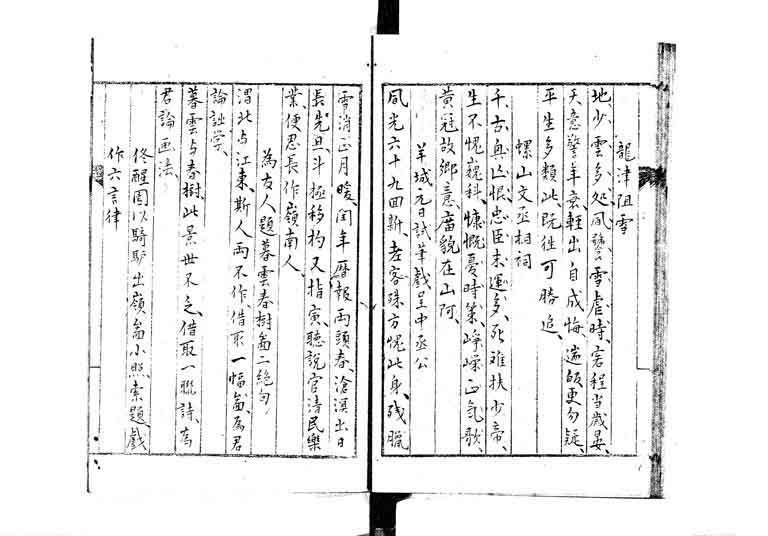 龍津阻雪
地少雲多処、風號雪虐時、客程當歲晏、
天意警年衰、輕出自成悔、遄皈更勿疑、
平生多類此、既往可勝追、
螺山文丞相祠
千古興亡恨、忠臣末運多、死難扶少帝、
生不愧巍科、慷慨憂時策、崢嶸正氣歌、
黃冠故鄉意、廟貌在山阿、
羊城元日試筆戲呈中丞公
風光六十九回新、老客殊方愧此身、殘臘
雪消正月暖、閏年曆報兩頭春、滄溟出日
長先旦、斗極移杓又指寅、聽說官清民樂
業、便忍長作嶺南人、
為友人題暮雲春樹啚二絕句
渭北与江東、斯人兩不作、借取一幅啚、為君
論詩學、
暮雲与春樹、此景世不乏、借取一聯詩、為
君論画法、
佟醒園以騎驴出嶺啚小照索題戲
作六言律